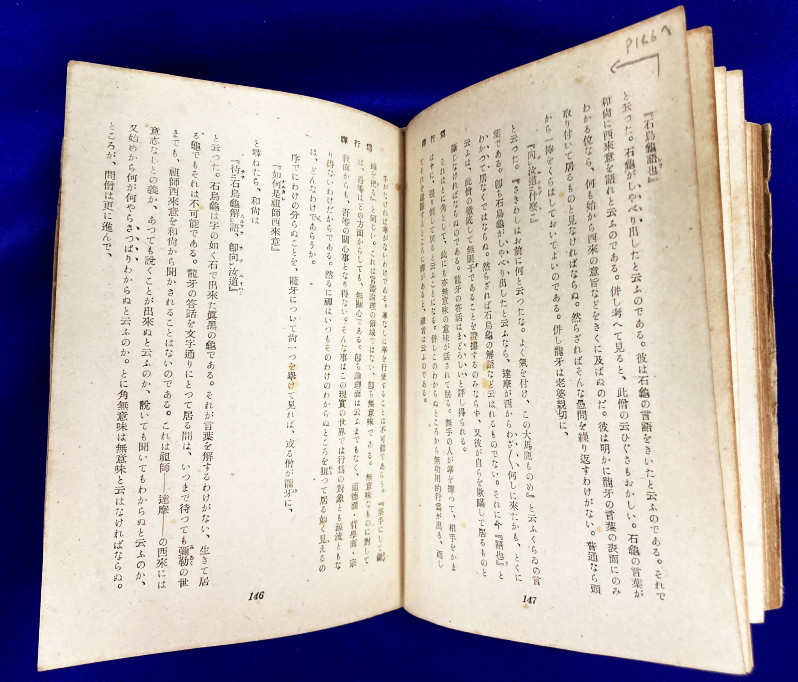 禪行爲
手がなければ拳がないわけである。拳なしに拳を行使することは不可能であらう。『空手にして鋤
頭を把る』と同じい。これは常識論理の領域ではない、卽ち無意味である。無意味なものに對して
は、吾等はどの方面からしても、無關心である。卽ち論理面は云ふまでもなく、道德面・哲學面・宗
敎面からも、吾等の關心事となり得ない。そんな事はこの現實の世界では行爲の對象とも源流ともな
り得ないわけだからである。然るに禪はいつもそのわけのわからぬところを狙つて居る如く見えるの
は、どんなわけであらうか。
序でにわけの分らぬことを、龍牙について尙一つを擧げて見れば、或る僧が龍牙に、
『如何是祖師西來意』
と尋ねたら、和尙は
『待石烏龜解語、卽向汝道』
と云つた。石烏龜は字の如く石で出來た眞黑の龜である。それが言葉を解するわけがない、生きて居
る龜でもそれは不可能である。龍牙の答話を文字通りにとつて居る間は、いつまで待つても彌勒の世
までも、祖師西來意を和尙から聞かされることはないのである。これは祖師――達摩――の西來には
意志なしとの義か、あつても說くことが出來ぬと云ふのか、說いても聞いてもわからぬと云ふのか、
又始めから何が何やらさつぱりわからぬと云ふのか。とに角無意味は無意味と云はなければならぬ。
ところが、問僧は更に進んで、
146
禪行爲
『石烏龜語也』
と云つた。石龜がしやべり出したと云ふのである。彼は石龜の言語をきいたと云ふのである。それで
和尙に西來意を語れと云ふのである。併し考へて見ると、此僧の云ひぐさもおかしい。石龜の言葉が
わかる位なら、何も始から西來の意旨などをきくに及ばぬのだ。彼は明かに龍牙の言葉の表面にのみ
取り付いて居るものと見なければならぬ。然らざればそんな愚問を繰り返すわけがない。普通なら頭
から一棒をくらはしておいてよいのである。併し龍牙は老婆親切に、
『向汝道什麽』
と云つた。『さきわしはお前に何と云つたな。よく氣を付け、この大馬鹿ものの』と云ふくらゐの言
葉である。卽ち石烏龜がしやべり出したと云ふなら、達摩が西からわざ〱何しに來たかも、とくに
わかつて居なくてはならぬ。然らざれば石烏龜の解語など云はれるものでない。それに今『語也』と
云ふは、此僧の徹底して無眼子であることを證據するのみならず、又彼が自らを欺瞞して居るものと
斷じなければならぬのである。龍牙の答話はまどろしいと評し得られる。
それはとに角として、此にも亦無意味の意味が話されて居る。無手の人が拳を握つて、相手をかま
147
P146へ